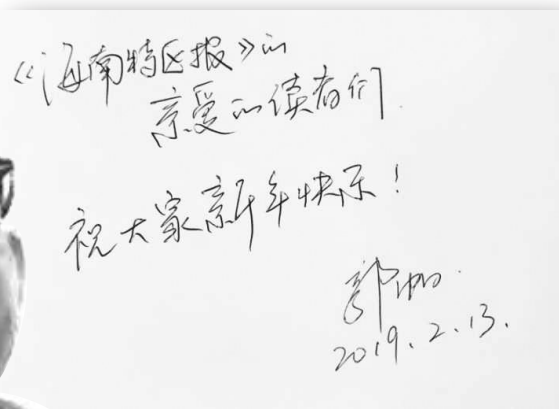 《海南特区报》的
亲爱的读者们
祝大家新年快乐!
郭帆
2019.2.13.